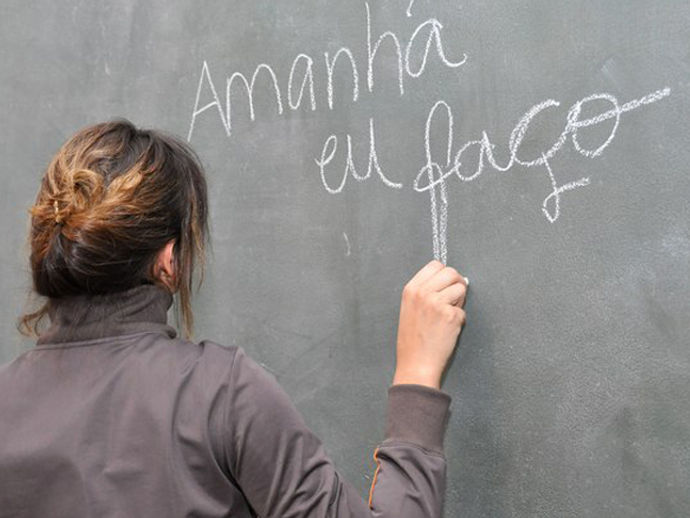 Amanhá
eu faço